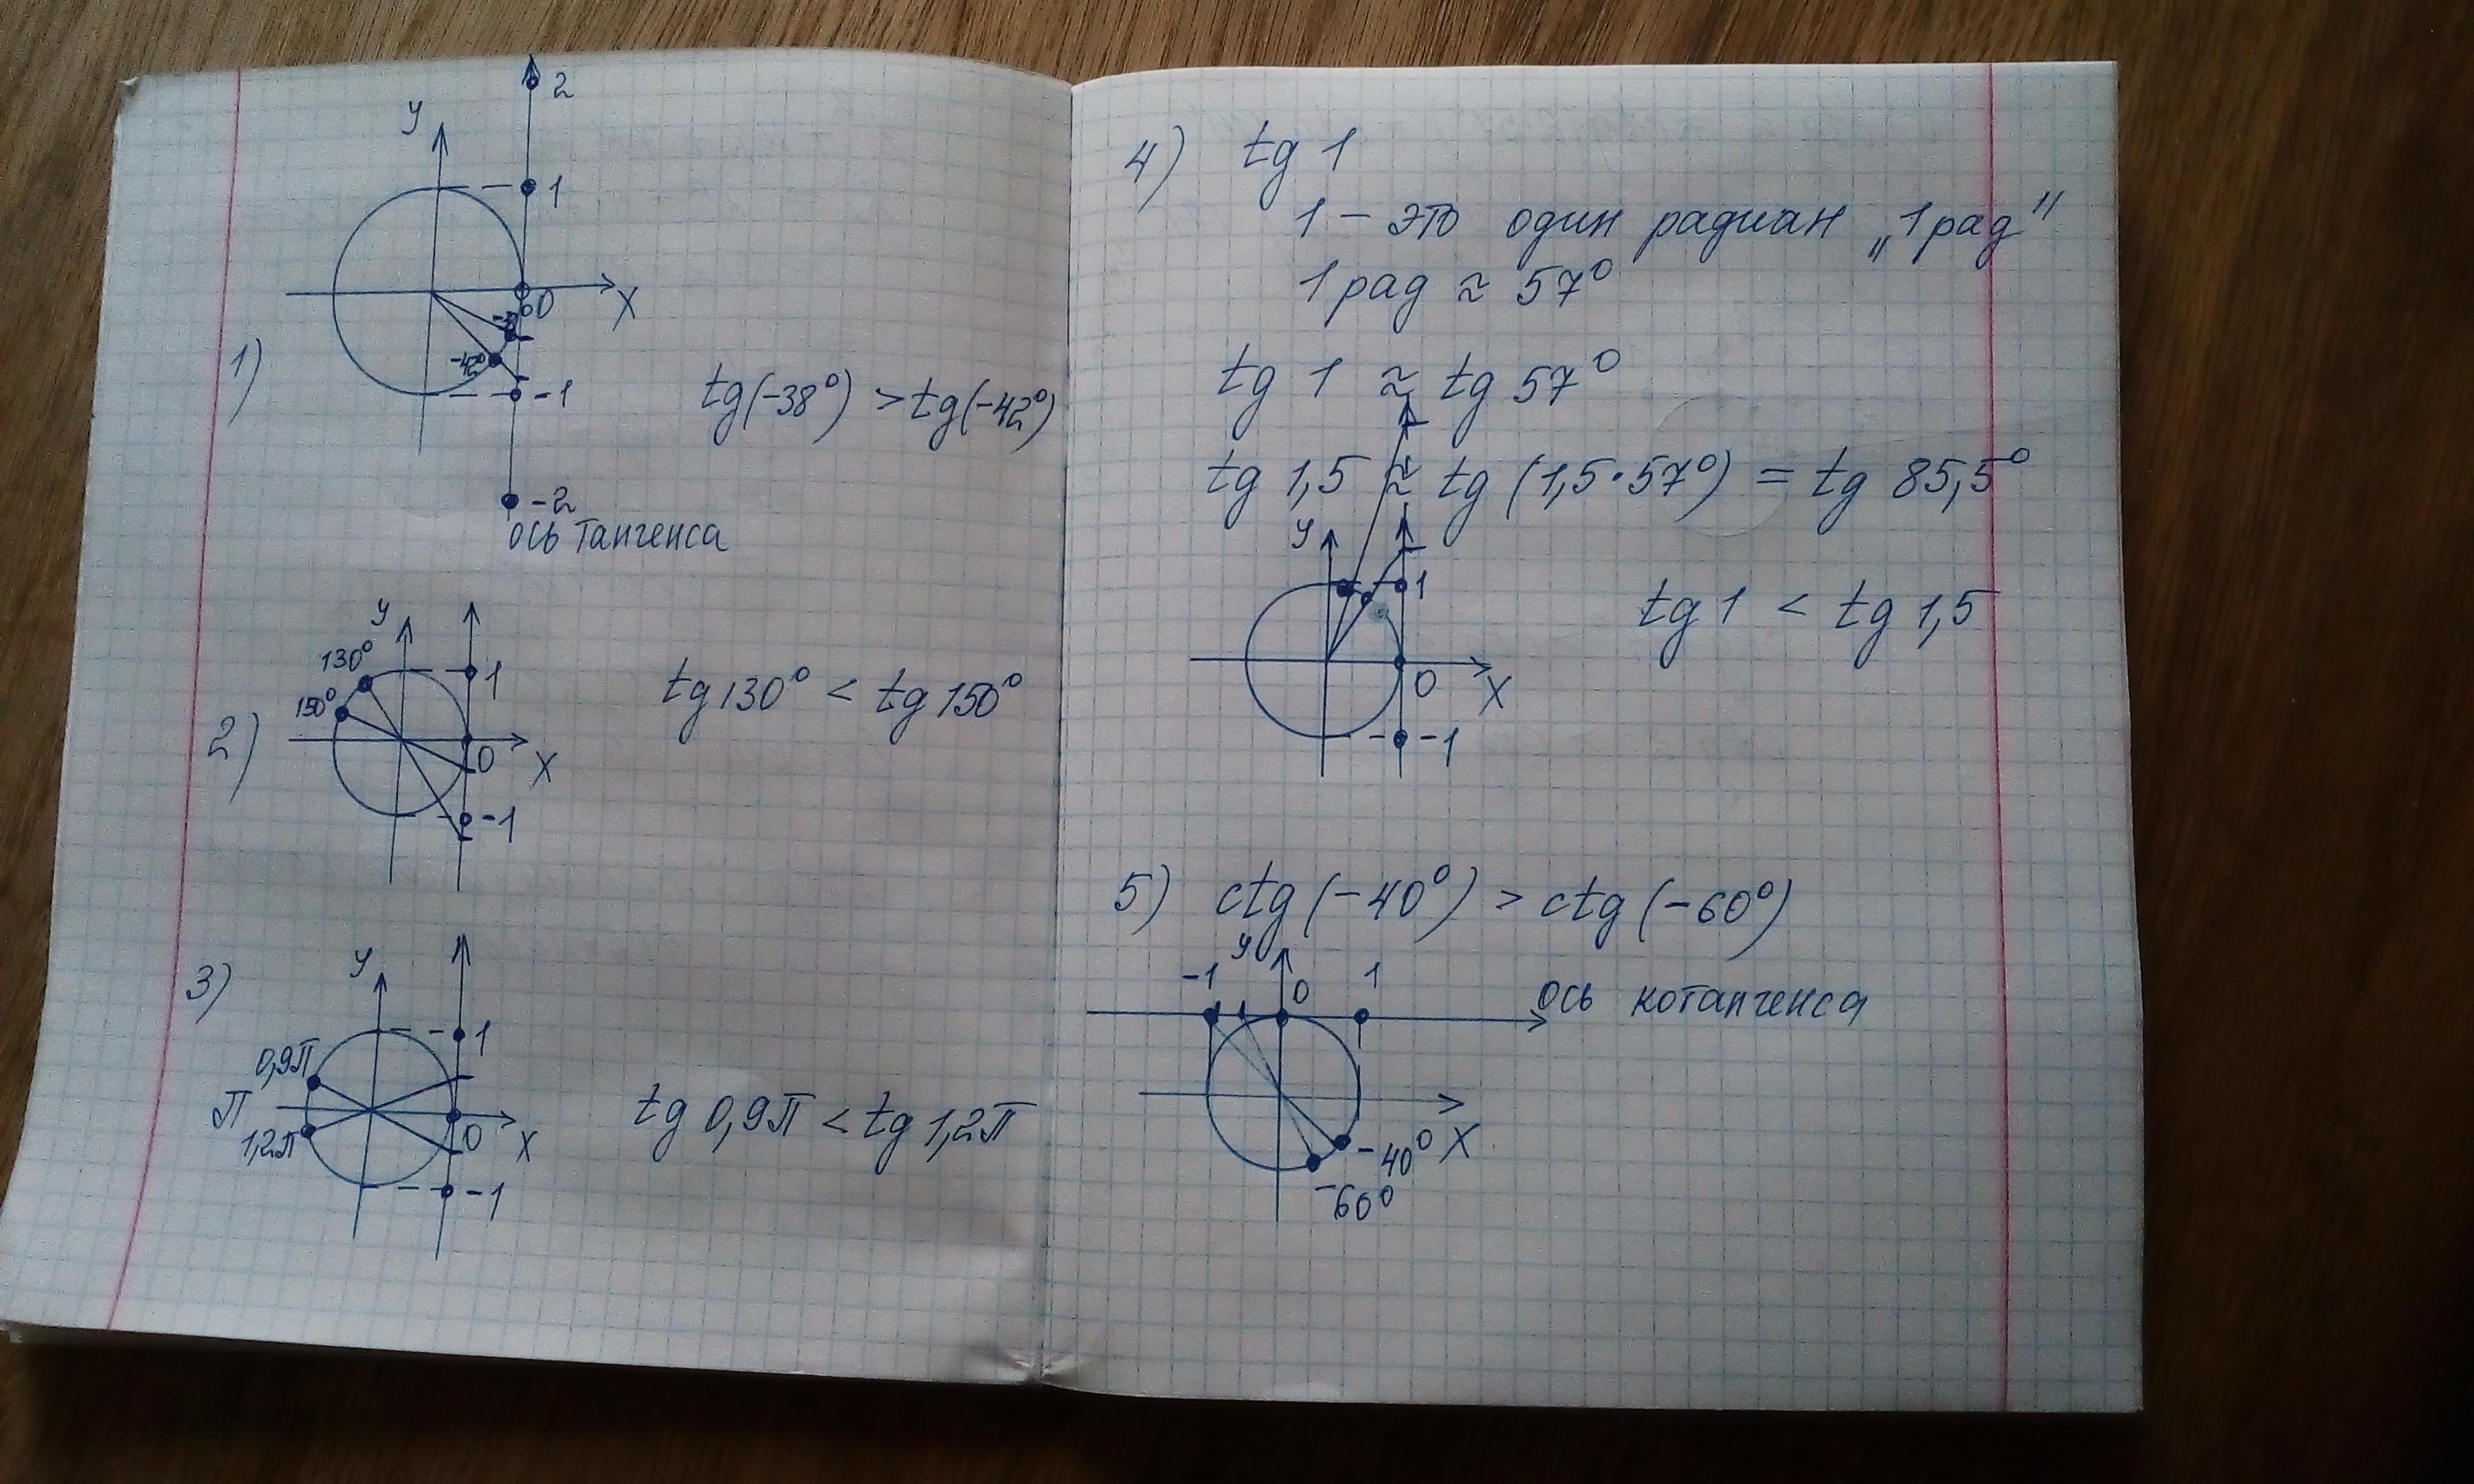 у
2
1
0
х
-38°
-42°
-1
-2
ось тангенса
1)
tg(-38°) > tg(-42°)
у
130°
150°
1
0
х
-1
2)
tg 130° < tg 150°
3)
у
0,9π
π
1,2π
1
0
х
-1
tg 0,9π < tg 1,2π
4) tg 1
1 - это один радиан „1 рад"
1 рад ≈ 57°
tg 1 ≈ tg 57°
tg 1,5 ≈ tg (1,5·57°) = tg 85,5°
у
1
0
х
-1
tg 1 < tg 1,5
5) ctg (-40°) > ctg (-60°)
у
-1
0
1
ось котангенса
-40°
х
-60°